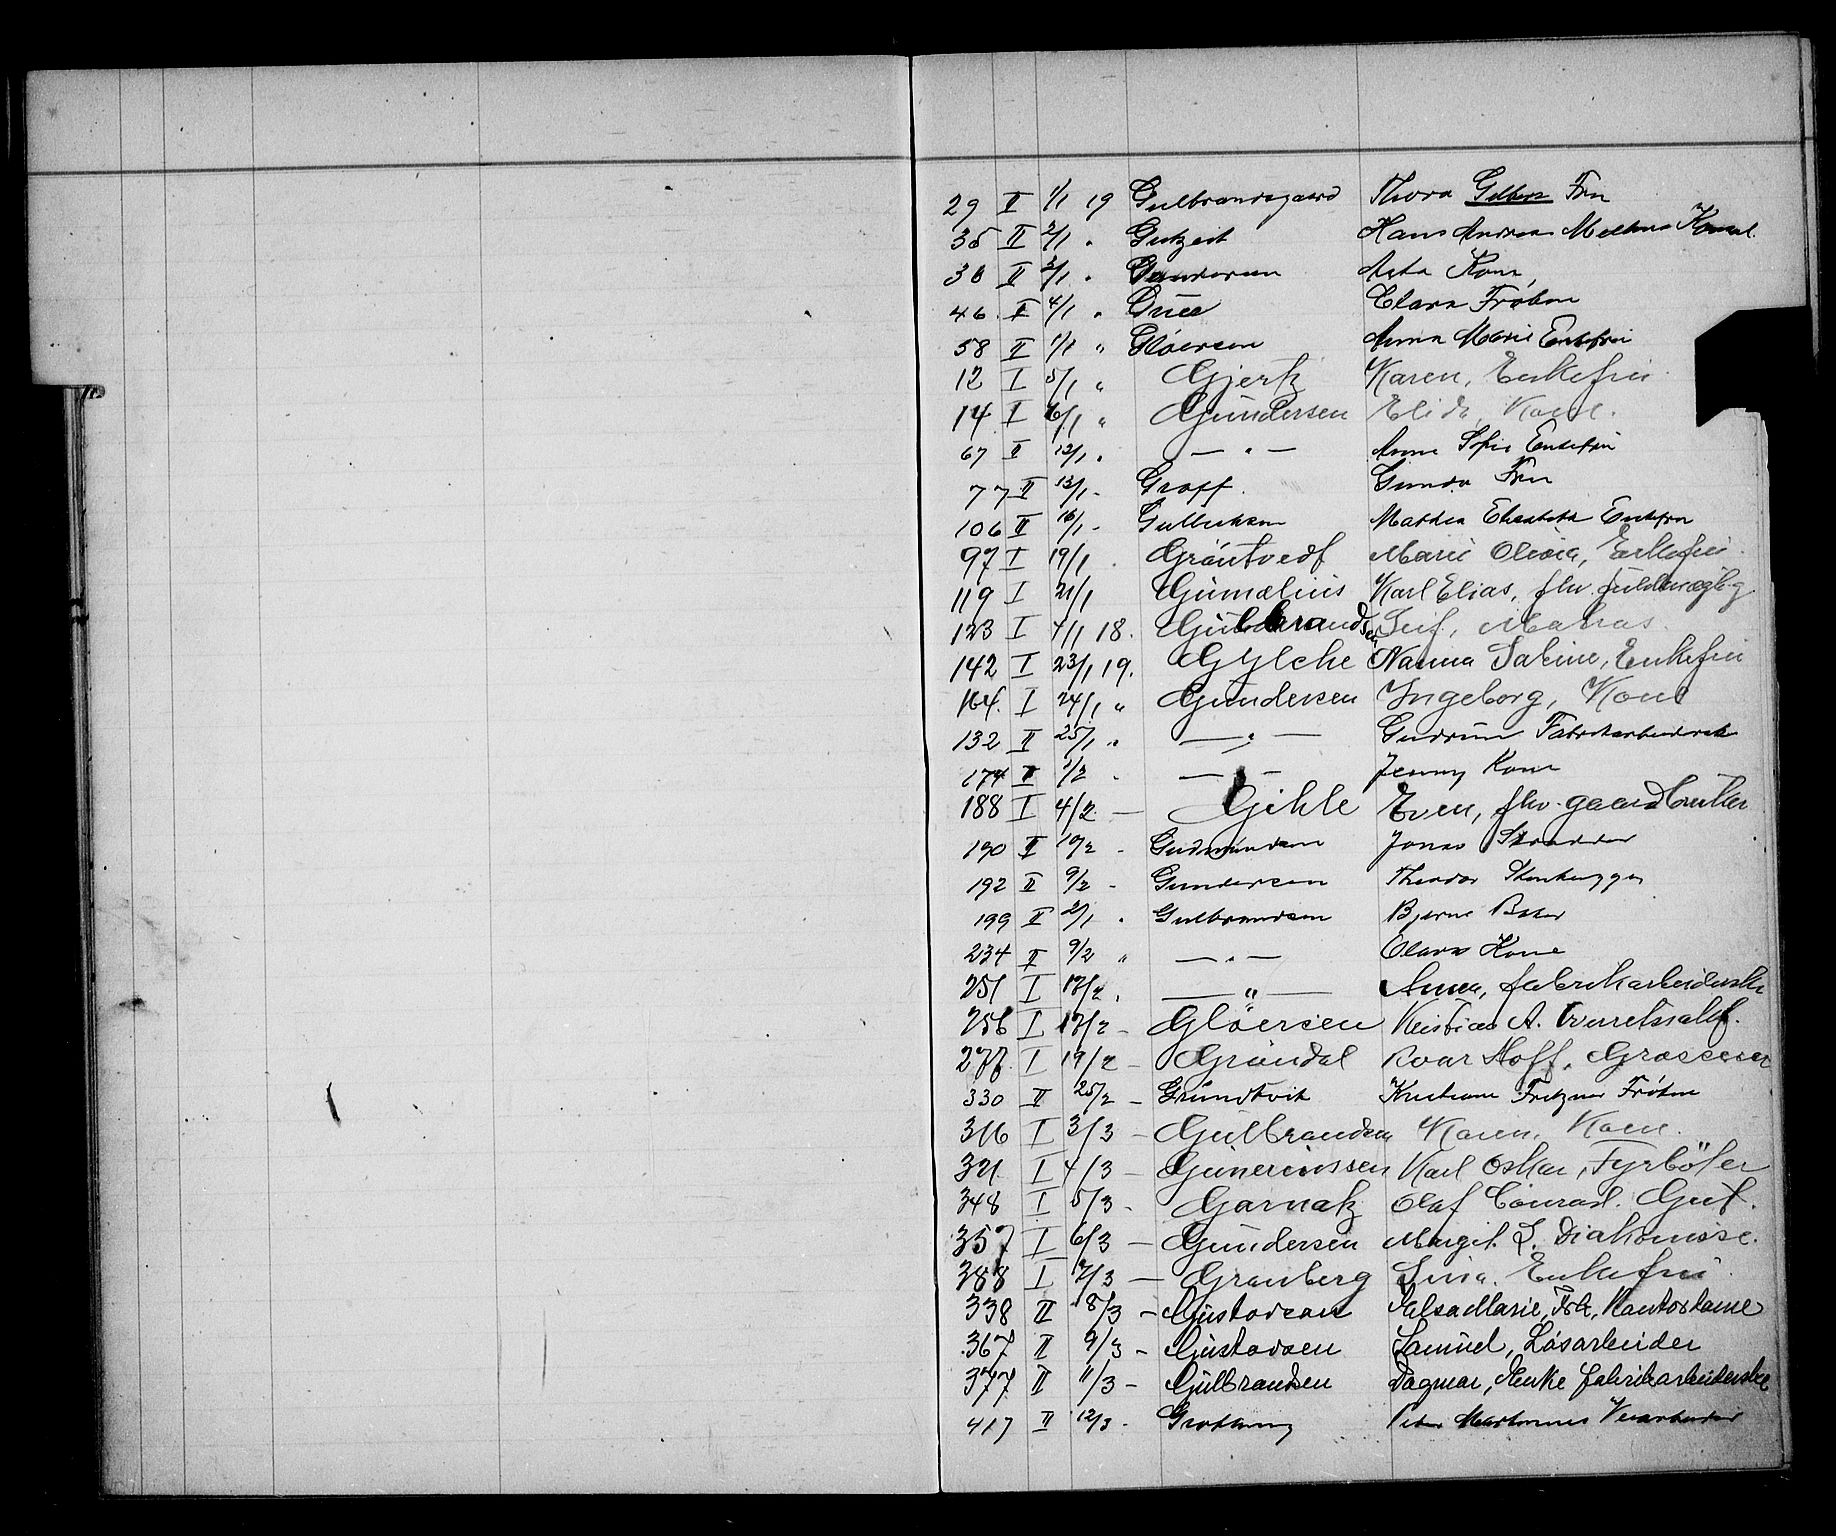 29 II 1/1 19 Gulbrandsgaard Thora Gilberz Fru
35 II 2/1 " Gutzeit Hans Andreas Kone
36 II 3/1 " Gundersen Asta Kone
46 II 4/1 " Clara Frøken
58 II 1/1 " Gløersen Anna Marie Enkefru
12 I 5/1 " Gjertz Karen, Enkefru
14 I 6/1 " Gundersen Elida Kone.
67 II 12/1 " — " — Anne Sofie Enkefru
77 II 13/1 - Graff Gunda Fru
106 II 16/1 - Gulbriksen Mathea Elisabeth Enkefru
97 I 19/1 . Gröntvedt Marie Olivia, Enkefru
119 I 21/1 Gumælius Karl Elias, fhv. fuldmægtig
123 I 4/1 18. Gulbrandsen Mathias
142 I 23/1 19. Gylche Nanna Sabine, Enkefru
164. I 24/1 " Gundersen Ingeborg, Kone
132 II 25/1 " — " — Gudrun Fabrikarbeiderske
174 II 1/2 . — " — Jenny Kone
188 I 4/2 — Gihle Even, fhv. gaardbruker
190 II 10/2 - Gudmundsen Jonas Skrædder
192 II 9/2 - Gundersen Theodor Stenhugger
199 II 2/1 . Gulbrandsen Bjarne
234 II 9/2 " — " — Clara Kone
251 I 17/2 . — " — Anna, fabrikarbeiderske
256 I 17/2 - Glöersen Kristian A.
277. I 19/2 - Gröndal Roar Hoff, Grosserer
330 II 25/2 - Grundtvik Kristiane Fritzner Frøken
316 I 3/3 - Gulbrandsen Karen, Kone.
321. I 4/3 - Gunerinssen Karl Oskar, Fyrböter
348 I 5/3 - Garnatz Olaf Conrad. Gut.
357 I 6/3 — Gundersen Margit. L. Diakonisse.
388 I 7/3 — Granberg Lina. Enkefru
338 II 8/3 - Gustavsen Elsa Marie, Frk, Kontordame
367 II 9/3 - Gustavsen Samuel, Løsarbeider
377 II 11/3 - Gulbrandsen Dagmar, Enke fabrikarbeiderske
417 II 12/3 - Peder Martinius Veiarbeider